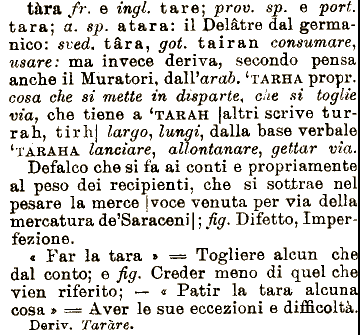 tàra fr. e ingl. tare; prov. sp. e port.
tara; a. sp. atara: il Delâtre dal germa-
nico: sved. târa, got. tairan consumare,
usare: ma invece deriva, secondo pensa
anche il Muratori, dall'arab. 'TARHA propr.
cosa che si mette in disparte, che si toglie
via, che tiene a 'TARAH |altri scrive tur-
rah, tirh| largo, lungi, dalla base verbale
'TARAHA lanciare, allontanare, gettar via.
Defalco che si fa ai conti e propriamente
al peso dei recipienti, che si sottrae nel
pesare la merce |voce venuta per via della
mercatura de'Saraceni|; fig. Difetto, Imper-
fezione.
« Far la tara » = Togliere alcun che
dal conto; e fig. Creder meno di quel che
vien riferito; — « Patir la tara alcuna
cosa » = Aver le sue eccezioni e difficoltà.
Deriv. Taràre.